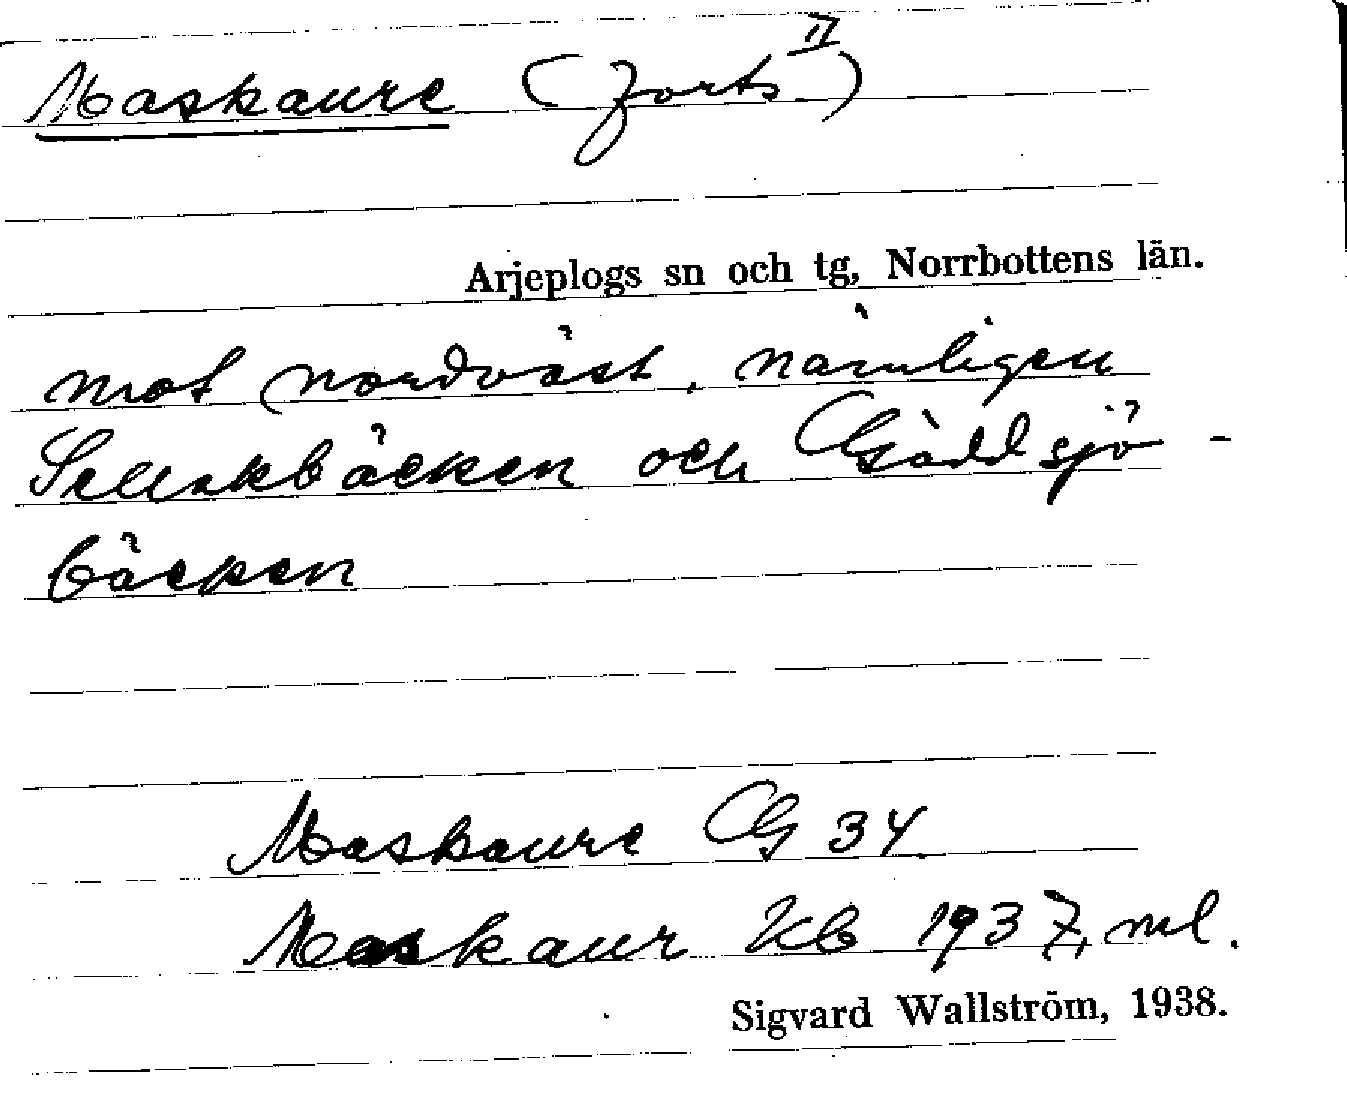 Maskaure (forts II)
Arjeplogs sn och tg, Norrbottens län.
mot nordväst, nämligen
och Gäddsjö-
bäcken
Maskaure G 34
Maskaur Kb 1937, ml.
Sigvard Wallström, 1938.